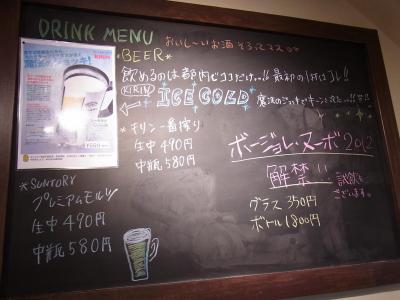 DRINK MENU
おいし〜いお酒 そろってマス
*BEER*
飲めるのは都内でココだけ…!! 最初の1杯はコレ!!
KIRIN ICE COLD
*キリン一番搾り
生中 490円
中瓶 580円
ボージョレ・ヌーボ 2012
解禁!!
試飲も
ございます。
グラス 350円
ボトル 1800円
*SUNTORY
プレミアムモルツ
生中 490円
中瓶 580円